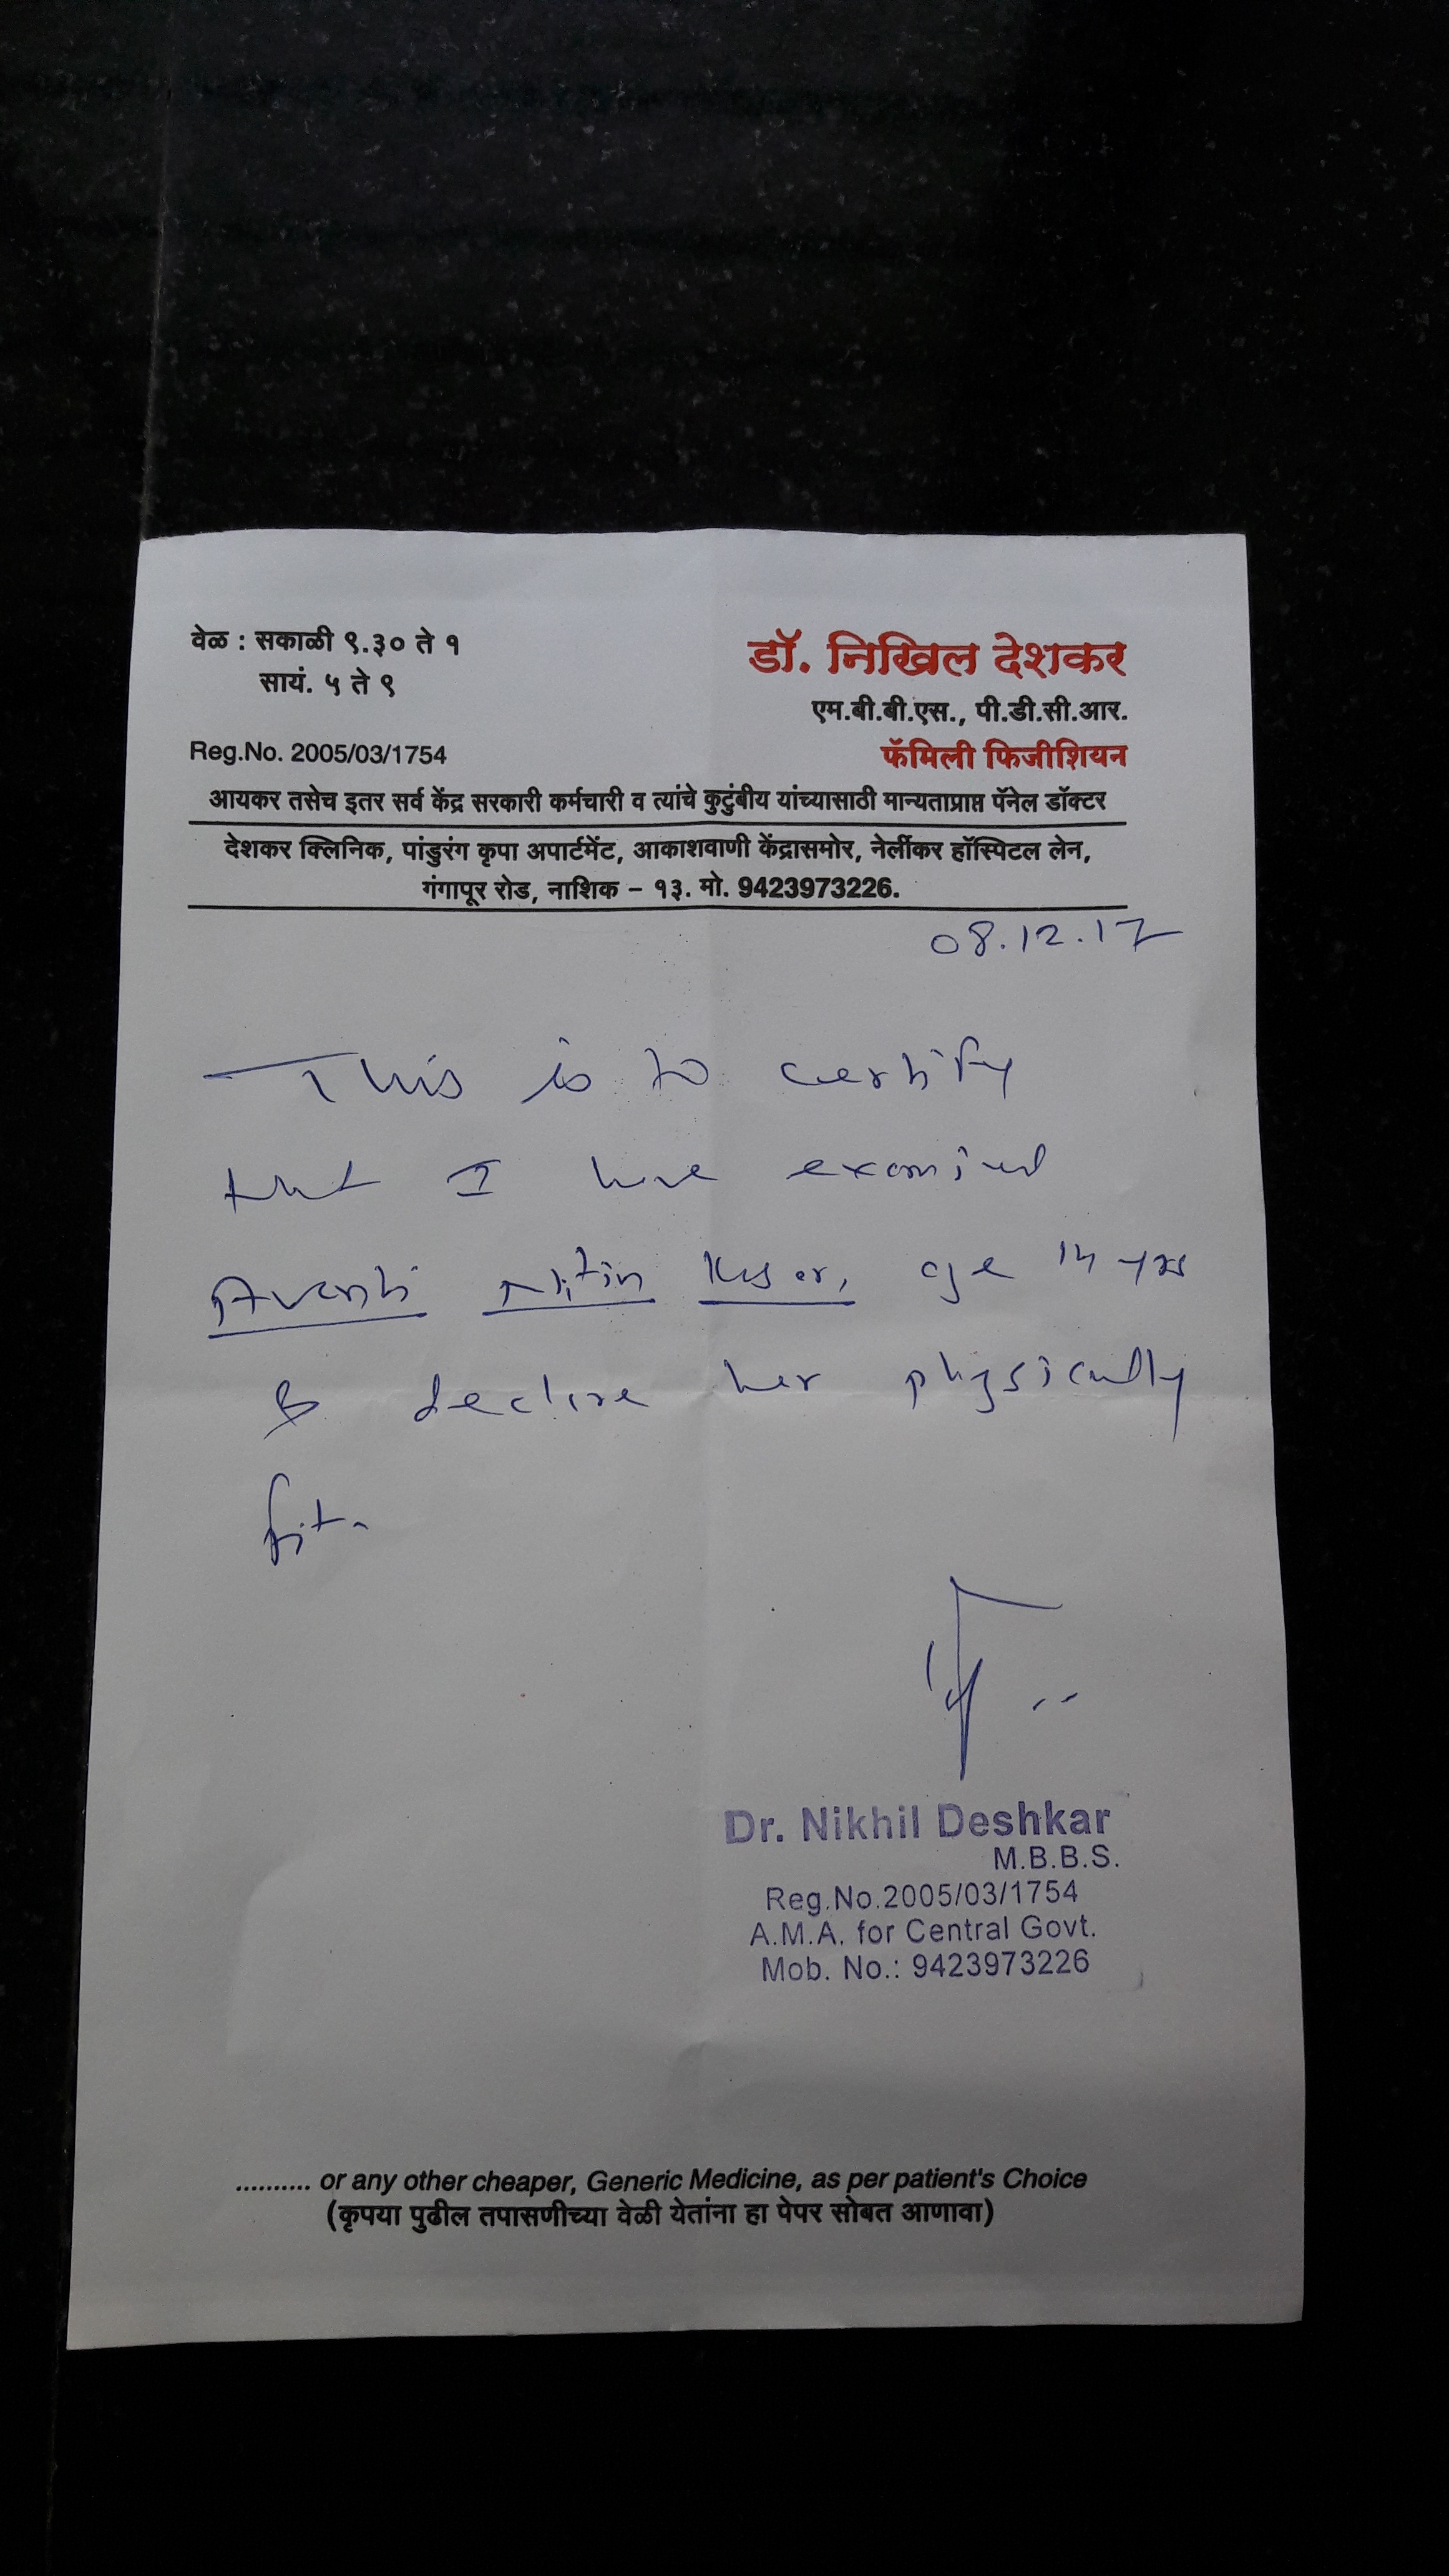 वेळ : सकाळी ९.३० ते १
सायं. ५ ते ९
Reg.No. 2005/03/1754
डॉ. निखिल देशकर
एम.बी.बी.एस., पी.डी.सी.आर.
फॅमिली फिजीशियन
आयकर तसेच इतर सर्व केंद्र सरकारी कर्मचारी व त्यांचे कुटुंबीय यांच्यासाठी मान्यताप्राप्त पॅनेल डॉक्टर
देशकर क्लिनिक, पांडुरंग कृपा अपार्टमेंट, आकाशवाणी केंद्रासमोर, नेर्लीकर हॉस्पिटल लेन,
गंगापूर रोड, नाशिक – १३. मो. 9423973226.
08.12.17
This is to certify
that I have examined
Nitin age 14 yrs
& declare her physically
fit.
Dr. Nikhil Deshkar
M.B.B.S.
Reg.No.2005/03/1754
A.M.A. for Central Govt.
Mob. No.: 9423973226
.......... or any other cheaper, Generic Medicine, as per patient's Choice
(कृपया पुढील तपासणीच्या वेळी येतांना हा पेपर सोबत आणावा)